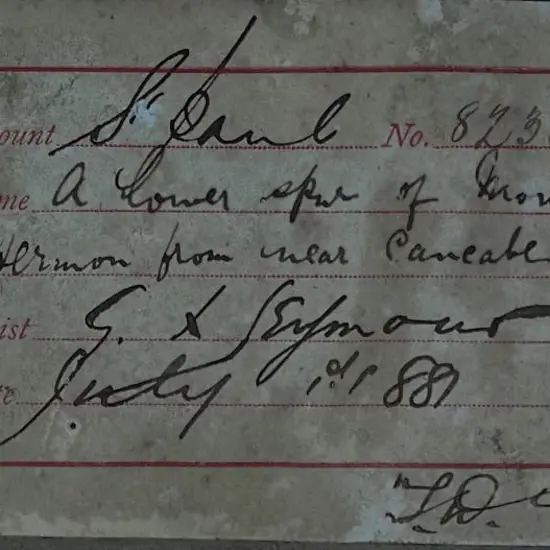 ount St Paul No. 823
me A Lower spur of Mou
Hermon from near Cancabe
ist G. L Seymour
te July 1st 1881
T. D.